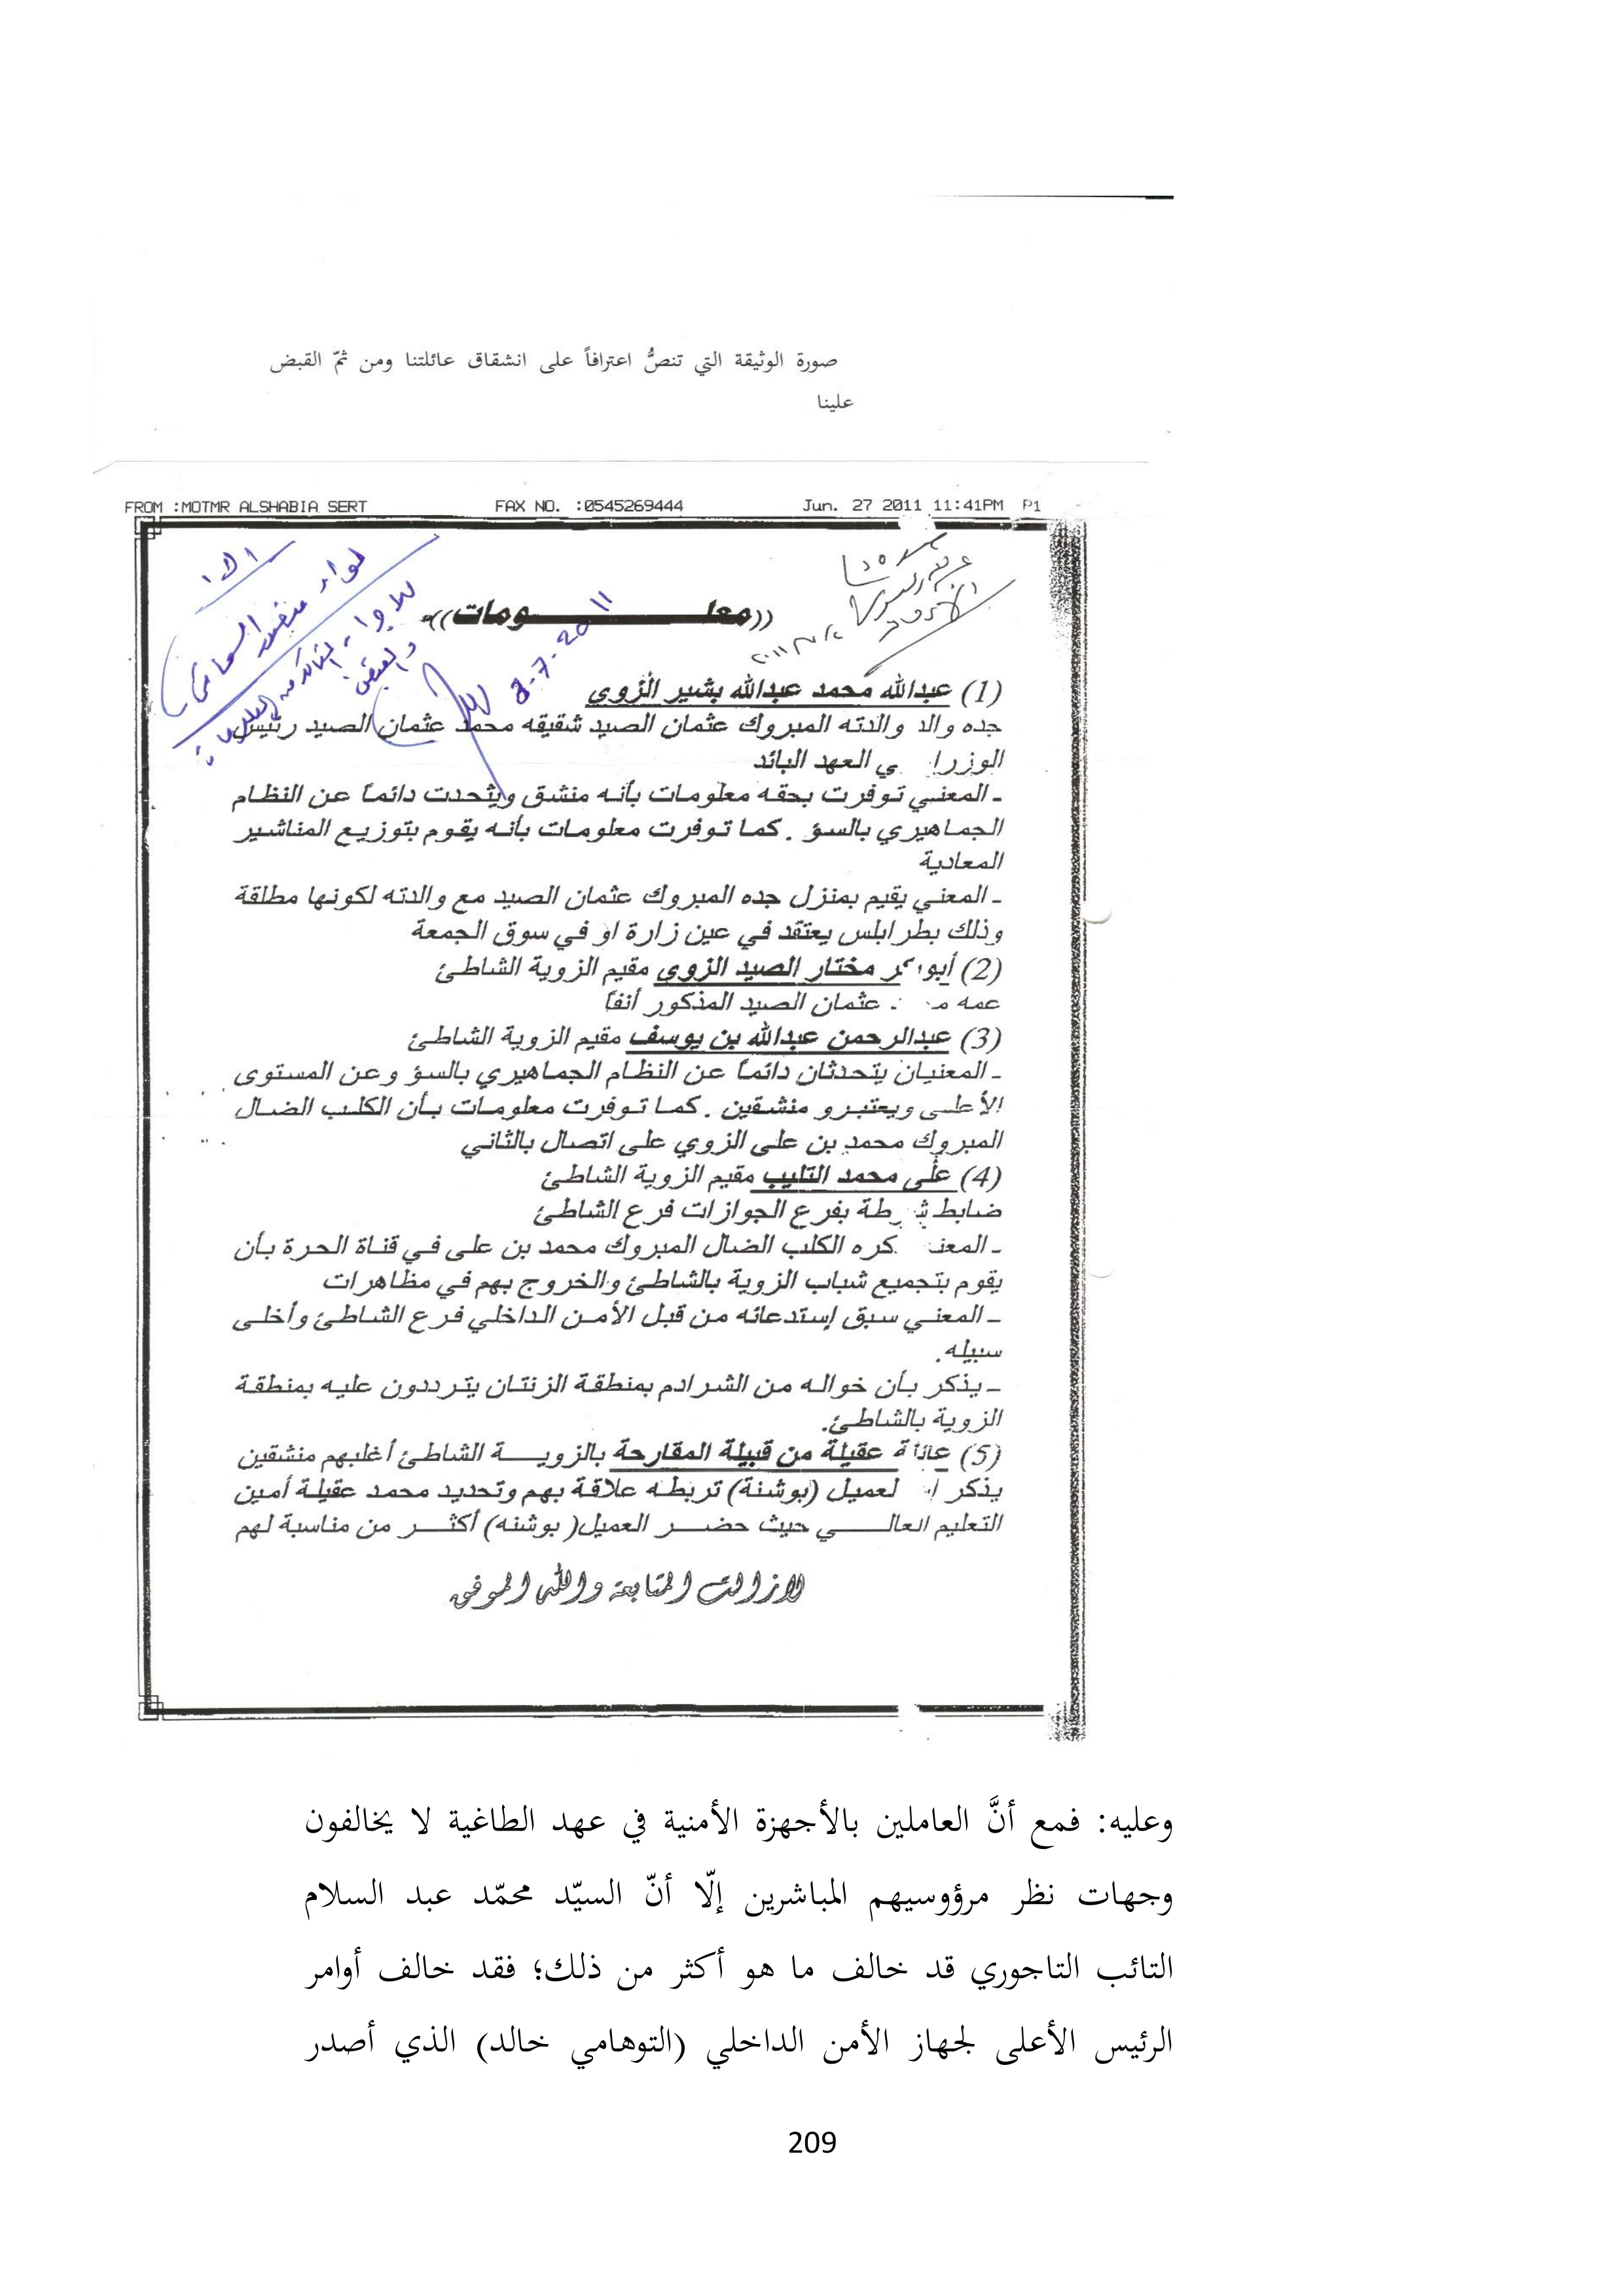 صورة الوثيقة التي تنصُّ اعترافاً على انشقاق عائلتنا ومن ثمّ القبض
علينا
FROM :MOTMR ALSHABIA SERT FAX NO. :0545269444 Jun. 27 2011 11:41PM P1
((معلـــــــــومات))
8-7-2011
(1) عبدالله محمد عبدالله بشير الزوي
جده والد والدته المبروك عثمان الصيد شقيقه محمد عثمان الصيد رئيس
الوزرا ي العهد البائد
ـ المعني توفرت بحقه معلومات بأنه منشق ويتحدت دائماً عن النظام
الجماهيري بالسؤ . كما توفرت معلومات بأنه يقوم بتوزيع المناشير
المعادية
ـ المعني يقيم بمنزل جده المبروك عثمان الصيد مع والدته لكونها مطلقة
وذلك بطرابلس يعتقد في عين زارة او في سوق الجمعة
(2) أبوبكر مختار الصيد الزوي مقيم الزوية الشاطئ
عمه عثمان الصيد المذكور أنفاً
(3) عبدالرحمن عبدالله بن يوسف مقيم الزوية الشاطئ
ـ المعنيان يتحدثان دائماً عن النظام الجماهيري بالسؤ وعن المستوى
الأعلى ويعتبرو منشقين . كما توفرت معلومات بأن الكلب الضال
المبروك محمد بن على الزوي على اتصال بالثاني
(4) على محمد التليب مقيم الزوية الشاطئ
ضابط شرطة بفرع الجوازات فرع الشاطئ
ـ المعنـ كره الكلب الضال المبروك محمد بن على في قناة الحرة بأن
يقوم بتجميع شباب الزوية بالشاطئ والخروج بهم في مظاهرات
ـ المعني سبق إستدعائه من قبل الأمن الداخلي فرع الشاطئ وأخلى
سبيله.
ـ يذكر بأن خواله من الشرادم بمنطقة الزنتان يترددون عليه بمنطقة
الزوية بالشاطئ.
(5) عائلة عقيلة من قبيلة المقارحة بالزويـــة الشاطئ أغلبهم منشقين
يذكر ا لعميل (بوشنة) تربطه علاقة بهم وتحديد محمد عقيلة أمين
التعليم العالـــي حيث حضــر العميل( بوشنه) أكثــر من مناسبة لهم
لازالت المتابعة والله الموفق
وعليه: فمع أنَّ العاملين بالأجهزة الأمنية في عهد الطاغية لا يخالفون
وجهات نظر مرؤوسيهم المباشرين إلّا أنّ السيّد محمّد عبد السلام
التائب التاجوري قد خالف ما هو أكثر من ذلك؛ فقد خالف أوامر
الرئيس الأعلى لجهاز الأمن الداخلي (التوهامي خالد) الذي أصدر
209